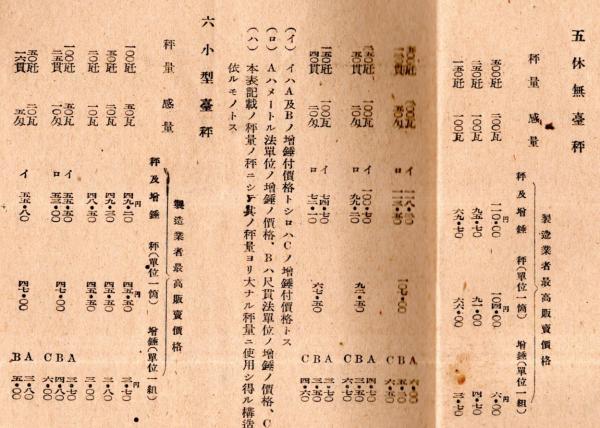 五 休無臺秤
秤量 感量 秤及增錘 秤(單位一箇) 增錘(單位一組)
製造業者最高販賣價格
五〇〇瓩 二〇〇瓦 一一〇・〇〇円 一〇四・〇〇円 六・〇〇円
二五〇瓩 一〇〇瓦 九五・七〇 九一・〇〇 四・七〇
一五〇瓩 一〇〇瓦 六九・七〇 六六・〇〇 三・七〇
イ
ロ
一〇七・五〇
A 六・〇〇
B
C
二五〇瓩 一〇〇瓦 イ 一〇〇・七〇
一〇匁 ロ 九九・二〇
九二・五〇
A 四・七〇
B 三・五〇
C 六・七〇
一五〇瓩 一〇〇瓦 イ 七四・七〇
四〇貫 一〇匁 ロ 七二・一〇
六七・五〇
A 三・七〇
B 三・五〇
C 四・六〇
(イ) イハA及Bノ增錘付價格トシロハCノ增錘付價格トス
(ロ) Aハメートル法單位ノ增錘ノ價格、Bハ尺貫法單位ノ增錘ノ價格、C
(ハ) 本表記載ノ秤量ノ秤ニシテ其ノ秤量ヨリ大ナル秤量ニ使用シ得ル構造
依ルモノトス
六 小型臺秤
秤量 感量 秤及增錘 秤(單位一箇) 增錘(單位一組)
製造業者最高販賣價格
一〇〇瓩 五〇瓦 四九・二〇円 四五・五〇円 三・七〇円
五〇瓩 二〇瓦 四九・二〇 四五・五〇 三・七〇
五〇瓩 一〇瓦 四八・五〇 四五・五〇 三・〇〇
一〇〇瓩 五〇瓦 イ 五五・二〇
二五貫 一〇匁 ロ 五三・〇〇
四七・〇〇
A 三・七〇
B 四・八〇
C 六・〇〇
五〇瓩 二〇瓦 イ 五五・八〇
一六貫 五匁
四七・〇〇
A 三・八〇
B 五・〇〇